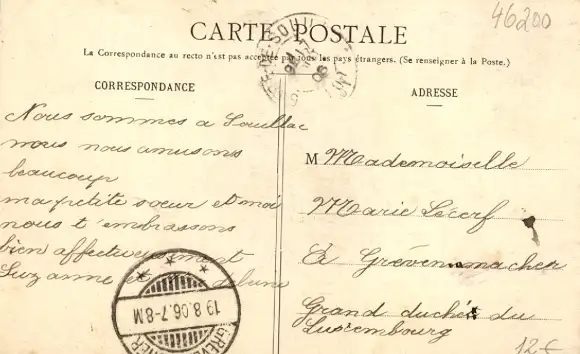 46200
CARTE POSTALE
La Correspondance au recto n'est pas acceptée par tous les pays étrangers. (Se renseigner à la Poste.)
CORRESPONDANCE
Nous sommes a Souillac
nous nous amusons
beaucoup
ma petite sœur et moi
nous t'embrassons
bien affectueusement
Suzanne et
ADRESSE
M Mademoiselle
Marie Lecerf
à Grévenmacher
Grand duché du
Luxembourg
12 €
19.8.06.7-8M
GREVENMACHER